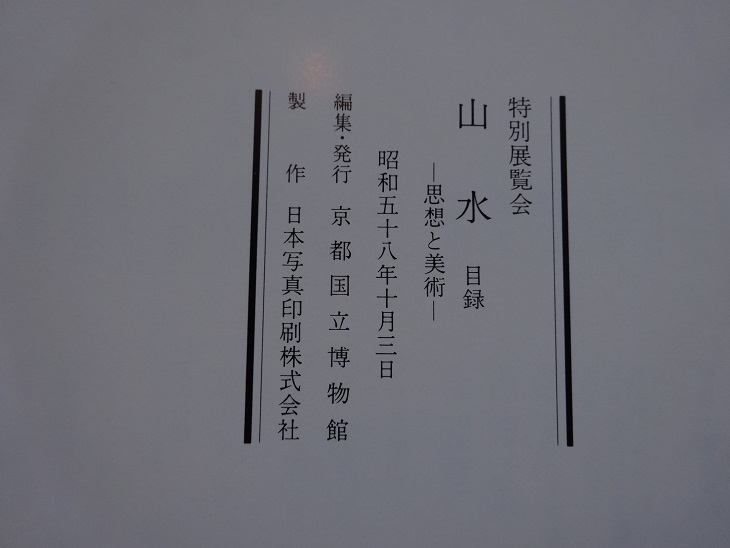 特別展覧会
山水 目録
―思想と美術―
昭和五十八年十月三日
編集・発行 京都国立博物館
製作 日本写真印刷株式会社